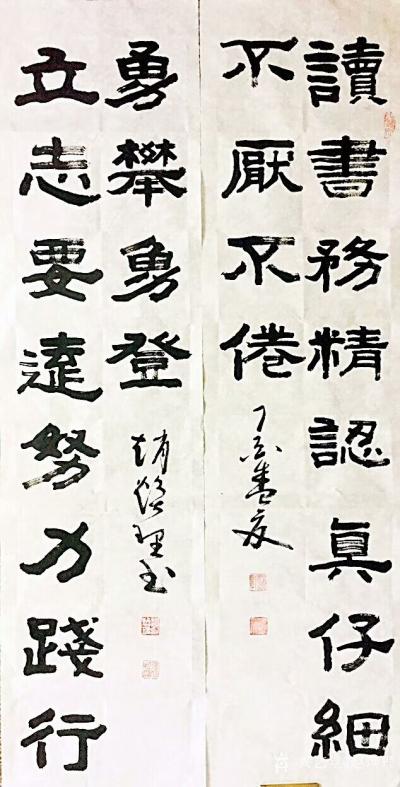 讀書務精認真仔細
不厭不倦
丁酉孟夏
立志要遠努力踐行
勇攀勇登